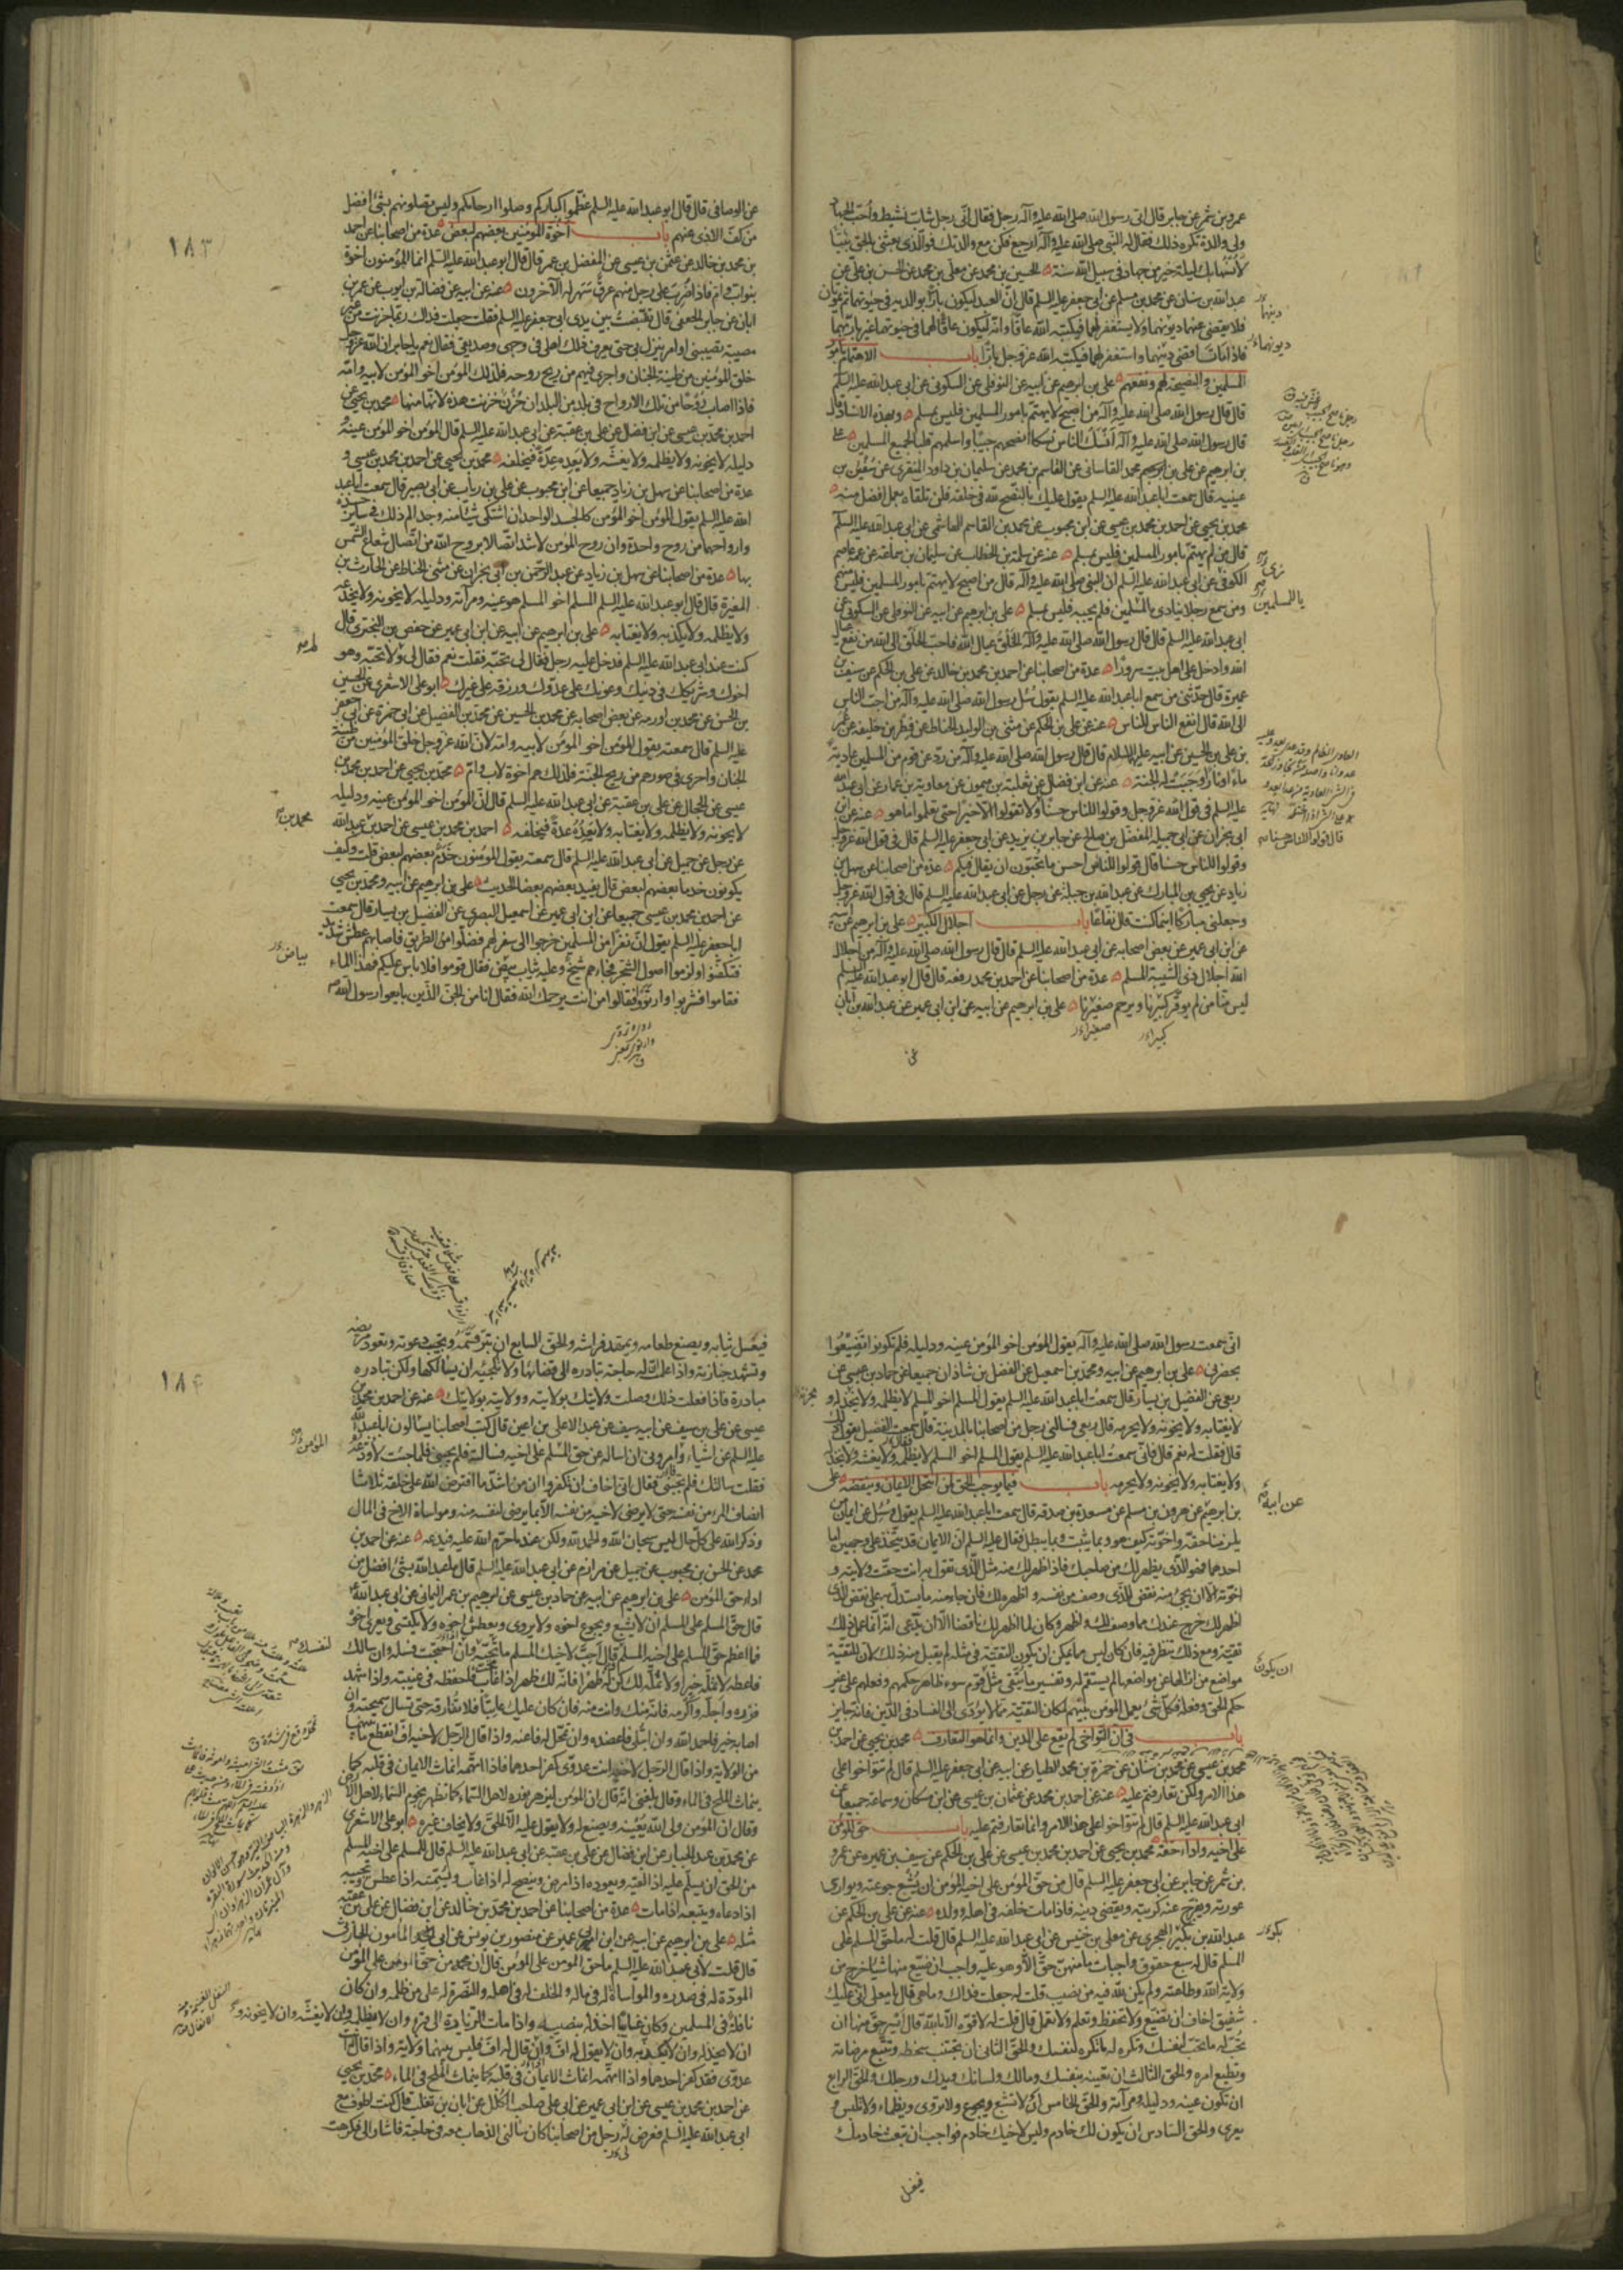 عمرو بن شمر عن جابر قال اتى رسول الله صلى الله عليه وآله رجل فقال انّي رجل شاب نشيط واُحبّ الجهاد
ولي والدة تكره ذلك فقال له النبي صلى الله عليه وآله ارجع فكن مع والدتك فوالّذي بعثني بالحق نبيّا
لاُنسها بك ليلة خير من جهاد في سبيل الله سنة الحسين بن محمد عن معلّى بن محمد عن الحسن بن علي عن
عبد الله بن سنان عن محمد بن مسلم عن ابي جعفر عليه السلم قال انّ العبد ليكون بارّا بوالديه في حيوتهما ثم يموتان
فلا يقضي عنهما ديونهما ولا يستغفر لهما فيكتبه الله عاقّا وانّه ليكون عاقّا لهما في حيوتهما غير بارّ بهما
فاذا ماتا قضى دينهما واستغفر لهما فيكتبه الله عز وجل بارّا باب الاهتمام بامور
المسلمين والنصيحة لهم ونفعهم علي بن ابرهيم عن ابيه عن النوفلي عن السكوني عن ابي عبد الله عليه السلم
قال قال رسول الله صلى الله عليه وآله من اصبح لا يهتمّ بامور المسلمين فليس بمسلم وبهذا الاسناد قال
قال رسول الله صلى الله عليه وآله انسك الناس نسكا انصحهم جيبا واسلمهم قلبا لجميع المسلمين علي
بن ابرهيم عن علي بن محمد القاساني عن القاسم بن محمد عن سليمان بن داود المنقري عن سفين بن
عيينه قال سمعت ابا عبد الله عليه السلم يقول عليك بالنّصح لله في خلقه فلن تلقاه بعمل افضل منه
محمد بن يحيى عن احمد بن محمد بن عيسى عن ابن محبوب عن محمد بن القاسم الهاشمي عن ابي عبد الله عليه السلم
قال من لم يهتمّ بامور المسلمين فليس بمسلم عنه عن سلمة بن الخطاب عن سليمان بن سماعة عن عمه عاصم
الكوفي عن ابي عبد الله عليه السلم ان النبي صلى الله عليه وآله قال من اصبح لا يهتمّ بامور المسلمين فليس منهم
ومن سمع رجلا ينادي يا للمسلمين فلم يجبه فليس بمسلم علي بن ابرهيم عن ابيه عن النوفلي عن السكوني عن
ابي عبد الله عليه السلم قال قال رسول الله صلى الله عليه وآله الخلق عيال الله فاحبّ الخلق الى الله من نفع عيال
الله وادخل على اهل بيت سرورًا عدة من اصحابنا عن احمد بن محمد بن خالد عن علي بن الحكم عن سيف بن
عميرة قال حدّثني من سمع ابا عبد الله عليه السلم يقول سُئل رسول الله صلى الله عليه وآله من احبّ الناس
الى الله قال انفع الناس للناس عنه عن علي بن الحكم عن مثنى بن الوليد الحناط عن فطر بن خليفه عن عمر
بن علي بن الحسين عن ابيه عليهما السلام قال قال رسول الله صلى الله عليه وآله من ردّ عن قوم من المسلمين عادية
ماء او نار اُوجبت له الجنة عنه عن ابن فضال عن ثعلبة بن ميمون عن معاوية بن عمار عن ابي عبد الله
عليه السلم في قول الله عز وجل وقولوا للناس حسنًا ولا تقولوا الّا خيرًا حتى تعلموا ما هو عنه عن ابن
ابي نجران عن ابي جميله المفضل بن صالح عن جابر بن يزيد عن ابي جعفر عليه السلم قال في قول الله عز وجل
وقولوا للناس حسنا قال قولوا للناس احسن ما تحبّون ان يقال فيكم عدة من اصحابنا عن سهل بن
زياد عن يحيى بن المبارك عن عبد الله بن جبلة عن رجل عن ابي عبد الله عليه السلم قال في قول الله عز وجل
وجعلني مباركا اينما كنت قال نفّاعًا باب اجلال الكبير علي بن ابرهيم عن ابيه
عن ابن ابي عمير عن بعض اصحابه عن ابي عبد الله عليه السلم قال قال رسول الله صلى الله عليه وآله من اجلال
الله اجلال ذي الشيبة المسلم عدة من اصحابنا عن احمد بن محمد رفعه قال قال ابو عبد الله عليه السلم
ليس منّا من لم يوقّر كبيرنا ويرحم صغيرنا علي بن ابرهيم عن ابيه عن ابن ابي عمير عن عبد الله بن ابان
عن
١٨٣
عن الوصافي قال قال ابو عبد الله عليه السلم عظّموا كباركم وصلوا ارحامكم وليس تصلونهم بشيء افضل
من كفّ الاذى عنهم باب اخوة المؤمنين بعضهم لبعض عدة من اصحابنا عن احمد
بن محمد بن خالد عن عثمن بن عيسى عن المفضل بن عمر قال قال ابو عبد الله عليه السلم انما المؤمنون اخوة
بنو اب وام فاذا ضرب على رجل منهم عرق سهر له الآخرون عنه عن ابيه عن فضاله بن ايوب عن عمر بن
ابان عن جابر الجعفي قال تقبّضت بين يدي ابي جعفر عليه السلم فقلت جعلت فداك ربّما حزنت من غير
مصيبة تصيبني او امر ينزل بي حتى يعرف ذلك اهلي في وجهي وصديقي فقال نعم يا جابر ان الله عز وجل
خلق المؤمنين من طينة الجنان واجرى فيهم من ريح روحه فلذلك المؤمن اخو المؤمن لابيه وامّه
فاذا اصاب روحًا من تلك الارواح في بلد من البلدان حُزن حزنت هذه لانّها منها محمد بن يحيى عن
احمد بن محمد بن عيسى عن ابن فضال عن علي بن عقبة عن ابي عبد الله عليه السلم قال المؤمن اخو المؤمن عينه
ودليله لا يخونه ولا يظلمه ولا يغشّه ولا يعده عدّة فيخلفه محمد بن يحيى عن احمد بن محمد بن عيسى و
عدة من اصحابنا عن سهل بن زياد جميعا عن ابن محبوب عن علي بن رياب عن ابي بصير قال سمعت ابا عبد
الله عليه السلم يقول المؤمن اخو المؤمن كالجسد الواحد ان اشتكى شيئا منه وجد الم ذلك في ساير جسده
وارواحهما من روح واحدة وان روح المؤمن لاشد اتّصالا بروح الله من اتّصال شعاع الشمس
بها عدة من اصحابنا عن سهل بن زياد عن عبد الرّحمن بن ابي نجران عن مثنى الحناط عن الحارث بن
المغيرة قال قال ابو عبد الله عليه السلم المسلم اخو المسلم هو عينه ومرآته ودليله لا يخونه ولا يخدعه
ولا يظلمه ولا يكذبه ولا يغتابه علي بن ابرهيم عن ابيه عن ابن ابي عمير عن حفص بن البختري قال
كنت عند ابي عبد الله عليه السلم فدخل عليه رجل فقال لي تحبّه فقلت نعم فقال لي ولا تحبّه وهو
اخوك وشريكك في دينك وعونك على عدوّك ورزقه على غيرك ابو علي الاشعري عن الحسين
بن الحسن عن محمد بن اورمه عن بعض اصحابه عن محمد بن الحسين عن محمد بن الفضيل عن ابي حمزة عن ابي جعفر
عليه السلم قال سمعته يقول المؤمن اخو المؤمن لابيه وامّه لانّ الله عز وجل خلق المؤمنين من طينة
الجنان واجرى في صورهم من ريح الجنة فلذلك هم اخوة لاب وامّ محمد بن يحيى عن احمد بن محمد بن
عيسى عن الحجال عن علي بن عقبة عن ابي عبد الله عليه السلم قال انّ المؤمن اخو المؤمن عينه ودليله
لا يخونه ولا يظلمه ولا يغتابه ولا يَعِدُهُ عدةً فيخلفه احمد بن محمد بن عيسى عن احمد بن عبد الله
عن رجل عن جميل عن ابي عبد الله عليه السلم قال سمعته يقول المؤمنون خدم بعضهم لبعض قلت وكيف
يكونون خدما بعضهم لبعض قال يفيد بعضهم بعضا الحديث علي بن ابرهيم عن ابيه ومحمد بن يحيى
عن احمد بن محمد بن عيسى جميعا عن ابن ابي عمير عن اسمعيل البصري عن الفضيل بن يسار قال سمعت
ابا جعفر عليه السلم يقول انّ نفرا من المسلمين خرجوا الى سفر لهم فضلّوا من الطريق فاصابهم عطش شديد
فتكفّنوا ولزموا اصول الشجر فجاءهم شيخ وعليه ثياب بيض فقال قوموا فلا باس عليكم فهذا الماء
فقاموا فشربوا وارتووا فقالوا من انت يرحمك الله فقال انا من الجنّ الذين بايعوا رسول الله
انّي سمعت رسول الله صلى الله عليه وآله يقول المؤمن اخو المؤمن عينه ودليله فلم تكونوا تضيّعوا
بحضرتي علي بن ابرهيم عن ابيه ومحمد بن اسمعيل عن الفضل بن شاذان جميعا عن حماد بن عيسى عن
ربعي عن الفضيل بن يسار قال سمعت ابا عبد الله عليه السلم يقول المسلم اخو المسلم لا يظلمه ولا يخذله و
لا يغتابه ولا يخونه ولا يحرمه قال ربعي فسالني رجل من اصحابنا بالمدينة قال سمعت الفضيل يقول ذلك
قال فقلت له نعم قال فانّي سمعت ابا عبد الله عليه السلم يقول المسلم اخو المسلم لا يظلمه ولا يغشه ولا يخذله
ولا يغتابه ولا يخونه ولا يحرمه باب فيما يوجب الحق لمن انتحل الايمان وينقضه علي
بن ابرهيم عن هرون بن مسلم عن مسعدة بن صدقه قال سمعت ابا عبد الله عليه السلم يقول وسُئل عن ايمان من
يلزمنا حقّه واخوّته كيف هو وبما يثبت وبما يبطل فقال عليه السلم انّ الايمان قد يتّخذ على وجهين اما
احدهما فهو الّذي يظهر لك من صاحبك فاذا ظهر لك منه مثل الّذي تقول به انت حقّت ولايته و
اخوّته الّا ان يجيء منه نقض للّذي وصف من نفسه واظهره لك فان جاء منه ما تستدل به على نقض الذي
اظهر لك خرج عندك مما وصف لك واظهر وكان لما اظهر لك ناقضا الّا ان يدّعي انّه انّما عمل ذلك
تقيّة ومع ذلك ينظر فيه فان كان ليس مما يمكن ان يكون التقيّة في مثله لم يقبل منه ذلك لان للتقيّة
مواضع من ازالها عن مواضعها لم يستقم له وتفسير ما يتّقي مثل قوم سوء ظاهر حكمهم وفعلهم على غير
حكم الحق وفعله فكل شيء يعمل المؤمن بينهم لمكان التقيّة ممّا لا يؤدّي الى الفساد في الدّين فانه جايز
باب في ان التواخي لم يقع على الدين وانما هو التعارف محمد بن يحيى عن احمد بن
محمد بن عيسى عن محمد بن سنان عن حمزة بن محمد الطيار عن ابيه عن ابي جعفر عليه السلم قال لم تتواخوا على
هذا الامر ولكن تعارفتم عليه عنه عن احمد بن محمد عن عثمان بن عيسى عن ابن مسكان وسماعة جميعا عن
ابي عبد الله عليه السلم قال لم تتواخوا على هذا الامر وانما تعارفتم عليه باب حق المؤمن
على اخيه واداء حقّه محمد بن يحيى عن احمد بن محمد بن عيسى عن علي بن الحكم عن سيف بن عميره عن عمرو
بن شمر عن جابر عن ابي جعفر عليه السلم قال من حقّ المؤمن على اخيه المؤمن ان يُشبع جوعته ويواري
عورته ويفرّج عنه كربته ويقضي دينه فاذا مات خلفه في اهله وولده عنه عن علي بن الحكم عن
عبد الله بن بكير الهجري عن معلى بن خنيس عن ابي عبد الله عليه السلم قال قلت له ما حقّ المسلم على
المسلم قال له سبع حقوق واجبات ما منهن حقّ الّا وهو عليه واجب ان ضيّع منها شيئا خرج من
ولاية الله وطاعته ولم يكن لله فيه من نصيب قلت له جعلت فداك وما هي قال يا معلى انّي عليك
شفيق اخاف ان تضيّع ولا تحفظ وتعلم ولا تعمل قال قلت له لا قوّة الّا بالله قال ايسر حقّ منها ان
تحبّ له ما تحبّ لنفسك وتكره له ما تكره لنفسك والحقّ الثاني ان تجتنب سخطه وتتّبع مرضاته
وتطيع امره والحق الثالث ان تعينه بنفسك ومالك ولسانك ويدك ورجلك والحق الرابع
ان تكون عينه ودليله ومرآته والحق الخامس ان لا تشبع ويجوع ولا تروى ويظماء ولا تلبس و
يعرى والحق السادس ان يكون لك خادم وليس لاخيك خادم فواجب ان تبعث خادمك
فيغسل
١٨٤
فيغسل ثيابه ويصنع طعامه ويمهّد فراشه والحق السابع ان تبرّ قسمه وتجيب دعوته وتعود مريضه
وتشهد جنازته واذا علمت انّ له حاجة تبادره الى قضائها ولا تلجئه ان يسالكها ولكن تبادره
مبادرة فاذا فعلت ذلك وصلت ولايتك بولايته وولايته بولايتك عنه عن احمد بن محمد بن
عيسى عن علي بن سيف عن ابيه سيف عن عبد الاعلى بن اعين قال كتب اصحابنا يسالون ابا عبد الله
عليه السلم عن اشياء وامروني ان اساله عن حقّ المسلم على اخيه فسالته فلم يجبني فلما جئت لاودّعه
فقلت سالتك فلم تجبني فقال اني اخاف ان تكفروا ان من اشدّ ما افترض الله على خلقه ثلاثا
انصاف المرء من نفسه حتى لا يرضى لاخيه من نفسه الّا بما يرضى لنفسه منه ومواساة الاخ في المال
وذكر الله على كلّ حال ليس سبحان الله والحمد لله ولكن عند ما حرّم الله عليه فيدعه عنه عن احمد بن
محمد عن الحسن بن محبوب عن جميل عن مرازم عن ابي عبد الله عليه السلم قال ما عبد الله بشيء افضل من
اداء حق المؤمن علي بن ابرهيم عن ابيه عن حماد بن عيسى عن ابرهيم بن عمر اليماني عن ابي عبد الله
قال حقّ المسلم على المسلم ان لا يشبع ويجوع اخوه ولا يروى ويعطش اخوه ولا يكتسي ويعرى اخوه
فما اعظم حقّ المسلم على اخيه المسلم وقال احبّ لاخيك المسلم ما تحبّه وان احتجت فسله وان سالك
فاعطه لا تملّه خيرا ولا يملّه لك كن له ظهرا فانّه لك ظهر اذا غاب فاحفظه في غيبته واذا شهد
فزره واجلّه واكرمه فانّه منك وانت منه فان كان عليك عاتبا فلا تفارقه حتى تسال سميحته وان
اصابه خير فاحمد الله وان ابتلي فاعضده وان تمحّل له فاعنه واذا قال الرّجل لاخيه افّ انقطع ما بينهما
من الولاية واذا قال الرجل لاخيه انت عدوّي كفر احدهما فاذا اتّهمه انماث الايمان في قلبه كما
ينماث الملح في الماء وقال بلغني انه قال ان المؤمن ليزهر نوره لاهل السماء كما تظهر نجوم السماء لاهل الارض
وقال ان المؤمن ولي الله يعينه ويصنع له ولا يقول عليه الّا الحقّ ولا يخاف غيره ابو علي الاشعري
عن محمد بن عبد الجبار عن ابن فضال عن علي بن عقبة عن ابي عبد الله عليه السلم قال للمسلم على اخيه المسلم
من الحقّ ان يسلّم عليه اذا لقيه ويعوده اذا مرض وينصح له اذا غاب ويسمّته اذا عطس ويجيبه
اذا دعاه ويتبعه اذا مات عدة من اصحابنا عن احمد بن محمد بن خالد عن ابن فضال عن علي بن عقبه
مثله علي بن ابرهيم عن ابيه عن ابن ابي عمير عن منصور بن يونس عن ابي المأمون الحارثي
قال قلت لابي عبد الله عليه السلم ما حق المؤمن على المؤمن قال ان من حقّ المؤمن على المؤمن
المودّة له في صدره والمواساة له في ماله والخلف له في اهله والنصرة له على من ظلمه وان كان
نافلة في المسلمين وكان غائبا اخذ له بنصيبه واذا مات الزّيارة الى قبره وان لا يظلمه وان لا يغشّه وان لا يخونه و
ان لا يخذله وان لا يكذبه وان لا يقول له افّ وان قال له افّ فليس بينهما ولاية واذا قال له انت
عدوّي فقد كفر احدهما واذا اتّهمه انماث الايمان في قلبه كما ينماث الملح في الماء محمد بن يحيى
عن احمد بن محمد بن عيسى عن ابن ابي عمير عن ابي علي صاحب الكلل عن ابان بن تغلب قال كنت اطوف مع
ابي عبد الله عليه السلم فعرض لي رجل من اصحابنا كان سالني الذهاب معه في حاجته فاشار الي فكرهت